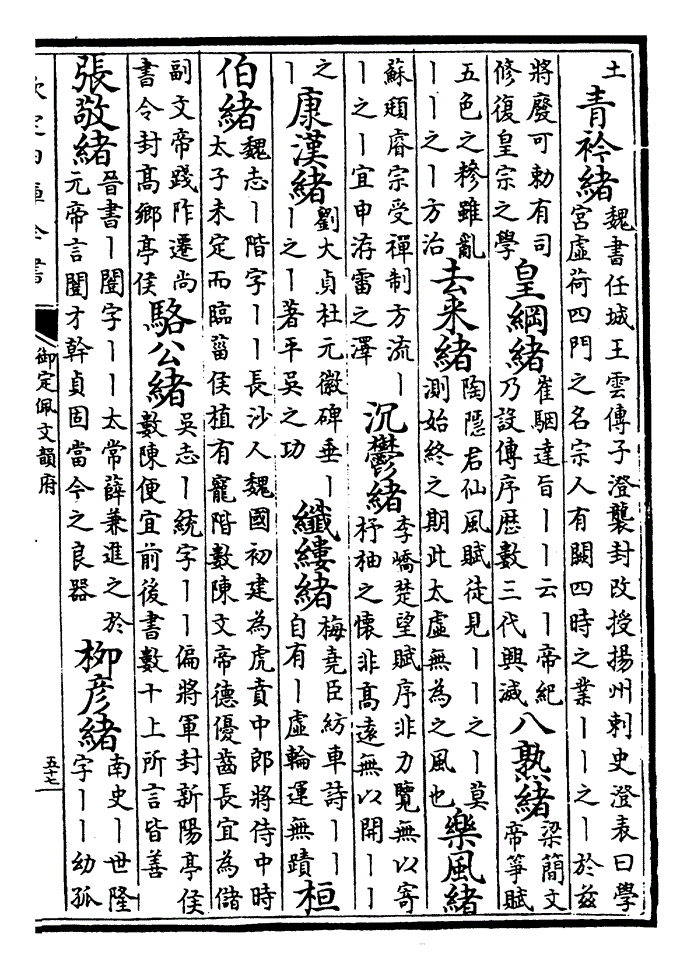 土青衿緒魏書任城王雲傳子澄襲封改授揚州刺史澄表曰學宮虛荷四門之名宗人有闕四時之業丨丨之丨於兹
將廢可勅有司修復皇宗之學皇綱緒崔駰達旨丨丨云丨帝紀乃設傳序歴數三代興滅八熟緒梁簡文帝箏賦
五色之糝雖亂丨丨之丨方治去来緒陶隱君仙風賦徒見丨丨之丨莫測始終之期此太虛無為之風也樂風緒
蘇頲睿宗受禪制方流丨丨之丨宜申洊雷之澤沉鬱緒李嶠楚望賦序非力覽無以寄杼柚之懷非高遠無以開丨丨
之丨康漢緒劉大貞杜元徽碑垂丨丨之丨著平吳之功纖縷緒梅堯臣紡車詩丨丨自有丨虛輪運無蹟桓
伯緒魏志丨階字丨丨長沙人魏國初建為虎賁中郎將侍中時太子未定而臨菑侯植有寵階數陳文帝德優齒長宜為儲
副文帝踐阼遷尚書令封高鄉亭侯駱公緒吳志丨統字丨丨偏將軍封新陽亭侯數陳便宜前後書數十上所言皆善
張敬緒晉書丨闓字丨丨太常薛兼進之於元帝言闓才幹貞固當今之良器柳彥緒南史丨世隆字丨丨幼孤
欽定四庫全書
御定佩文韻府
五十七